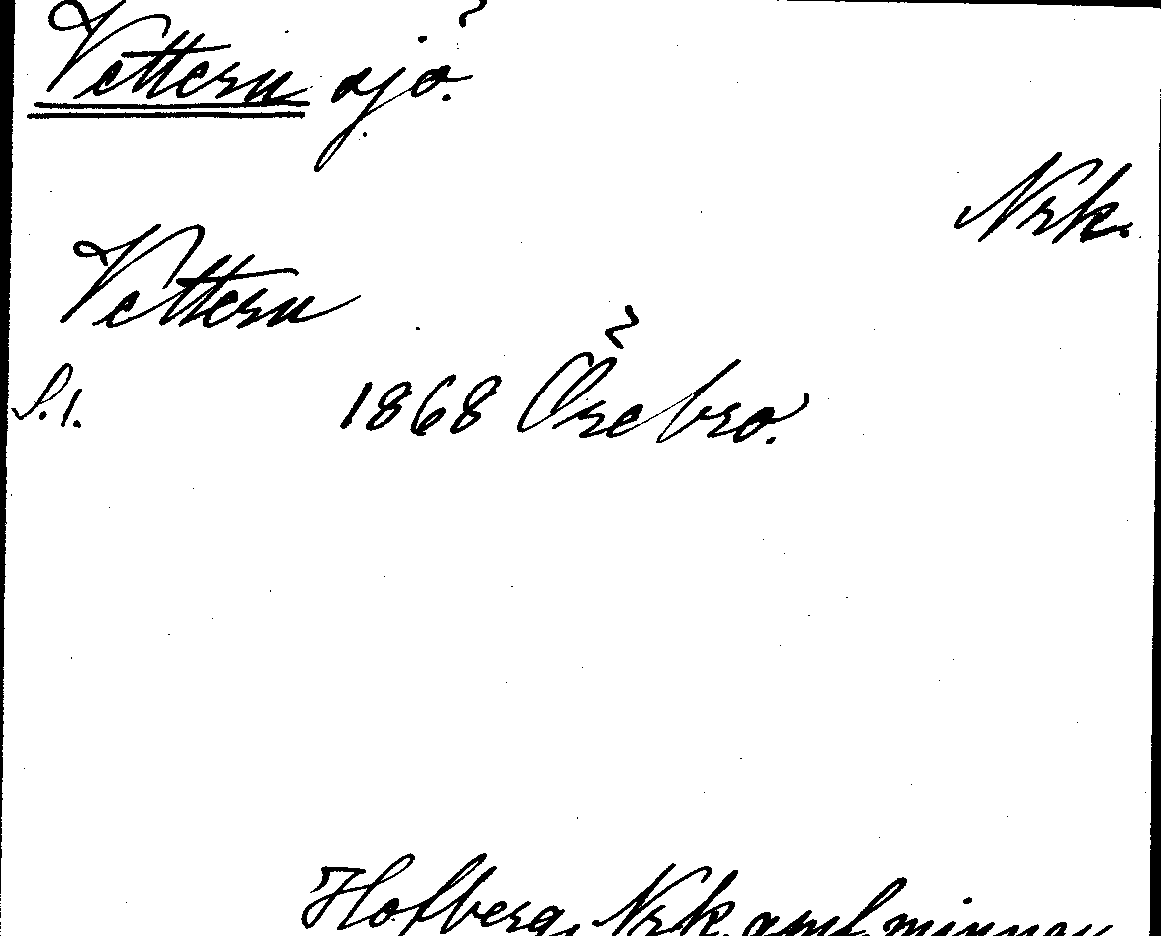 Vettern sjö.
Nrk.
Vettern
S. 1. 1868 Örebro.
Hofberg, Nrk. gml. minnen